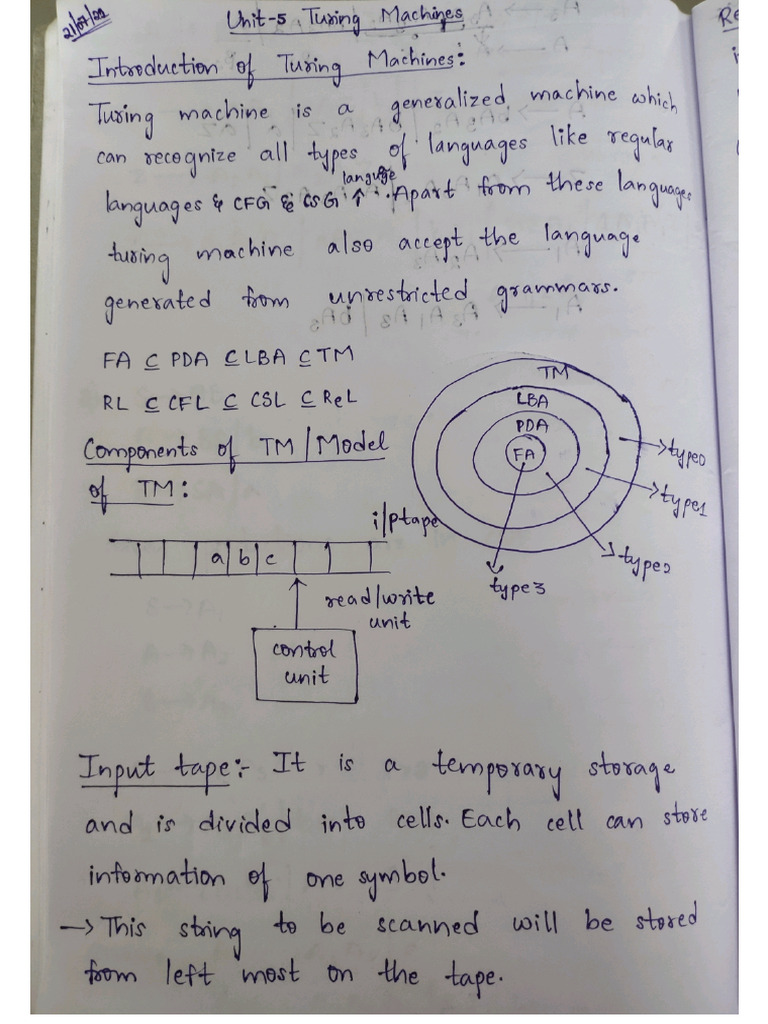 21/07/22
Unit-5 Turing Machines
Introduction of Turing Machines:
Turing machine is a generalized machine which
can recognize all types of languages like regular
language
languages & CFG & CSG ↑. Apart from these languages
turing machine also accept the language
generated from unrestricted grammars.
FA ⊆ PDA ⊆ LBA ⊆ TM
RL ⊆ CFL ⊆ CSL ⊆ ReL
TM
LBA
PDA
FA
type0
type1
type2
type3
Components of TM/Model
of TM:
i/p tape
a b c
read/write
unit
control
unit
Input tape:- It is a temporary storage
and is divided into cells. Each cell can store
information of one symbol.
→ This string to be scanned will be stored
from left most on the tape.
Re